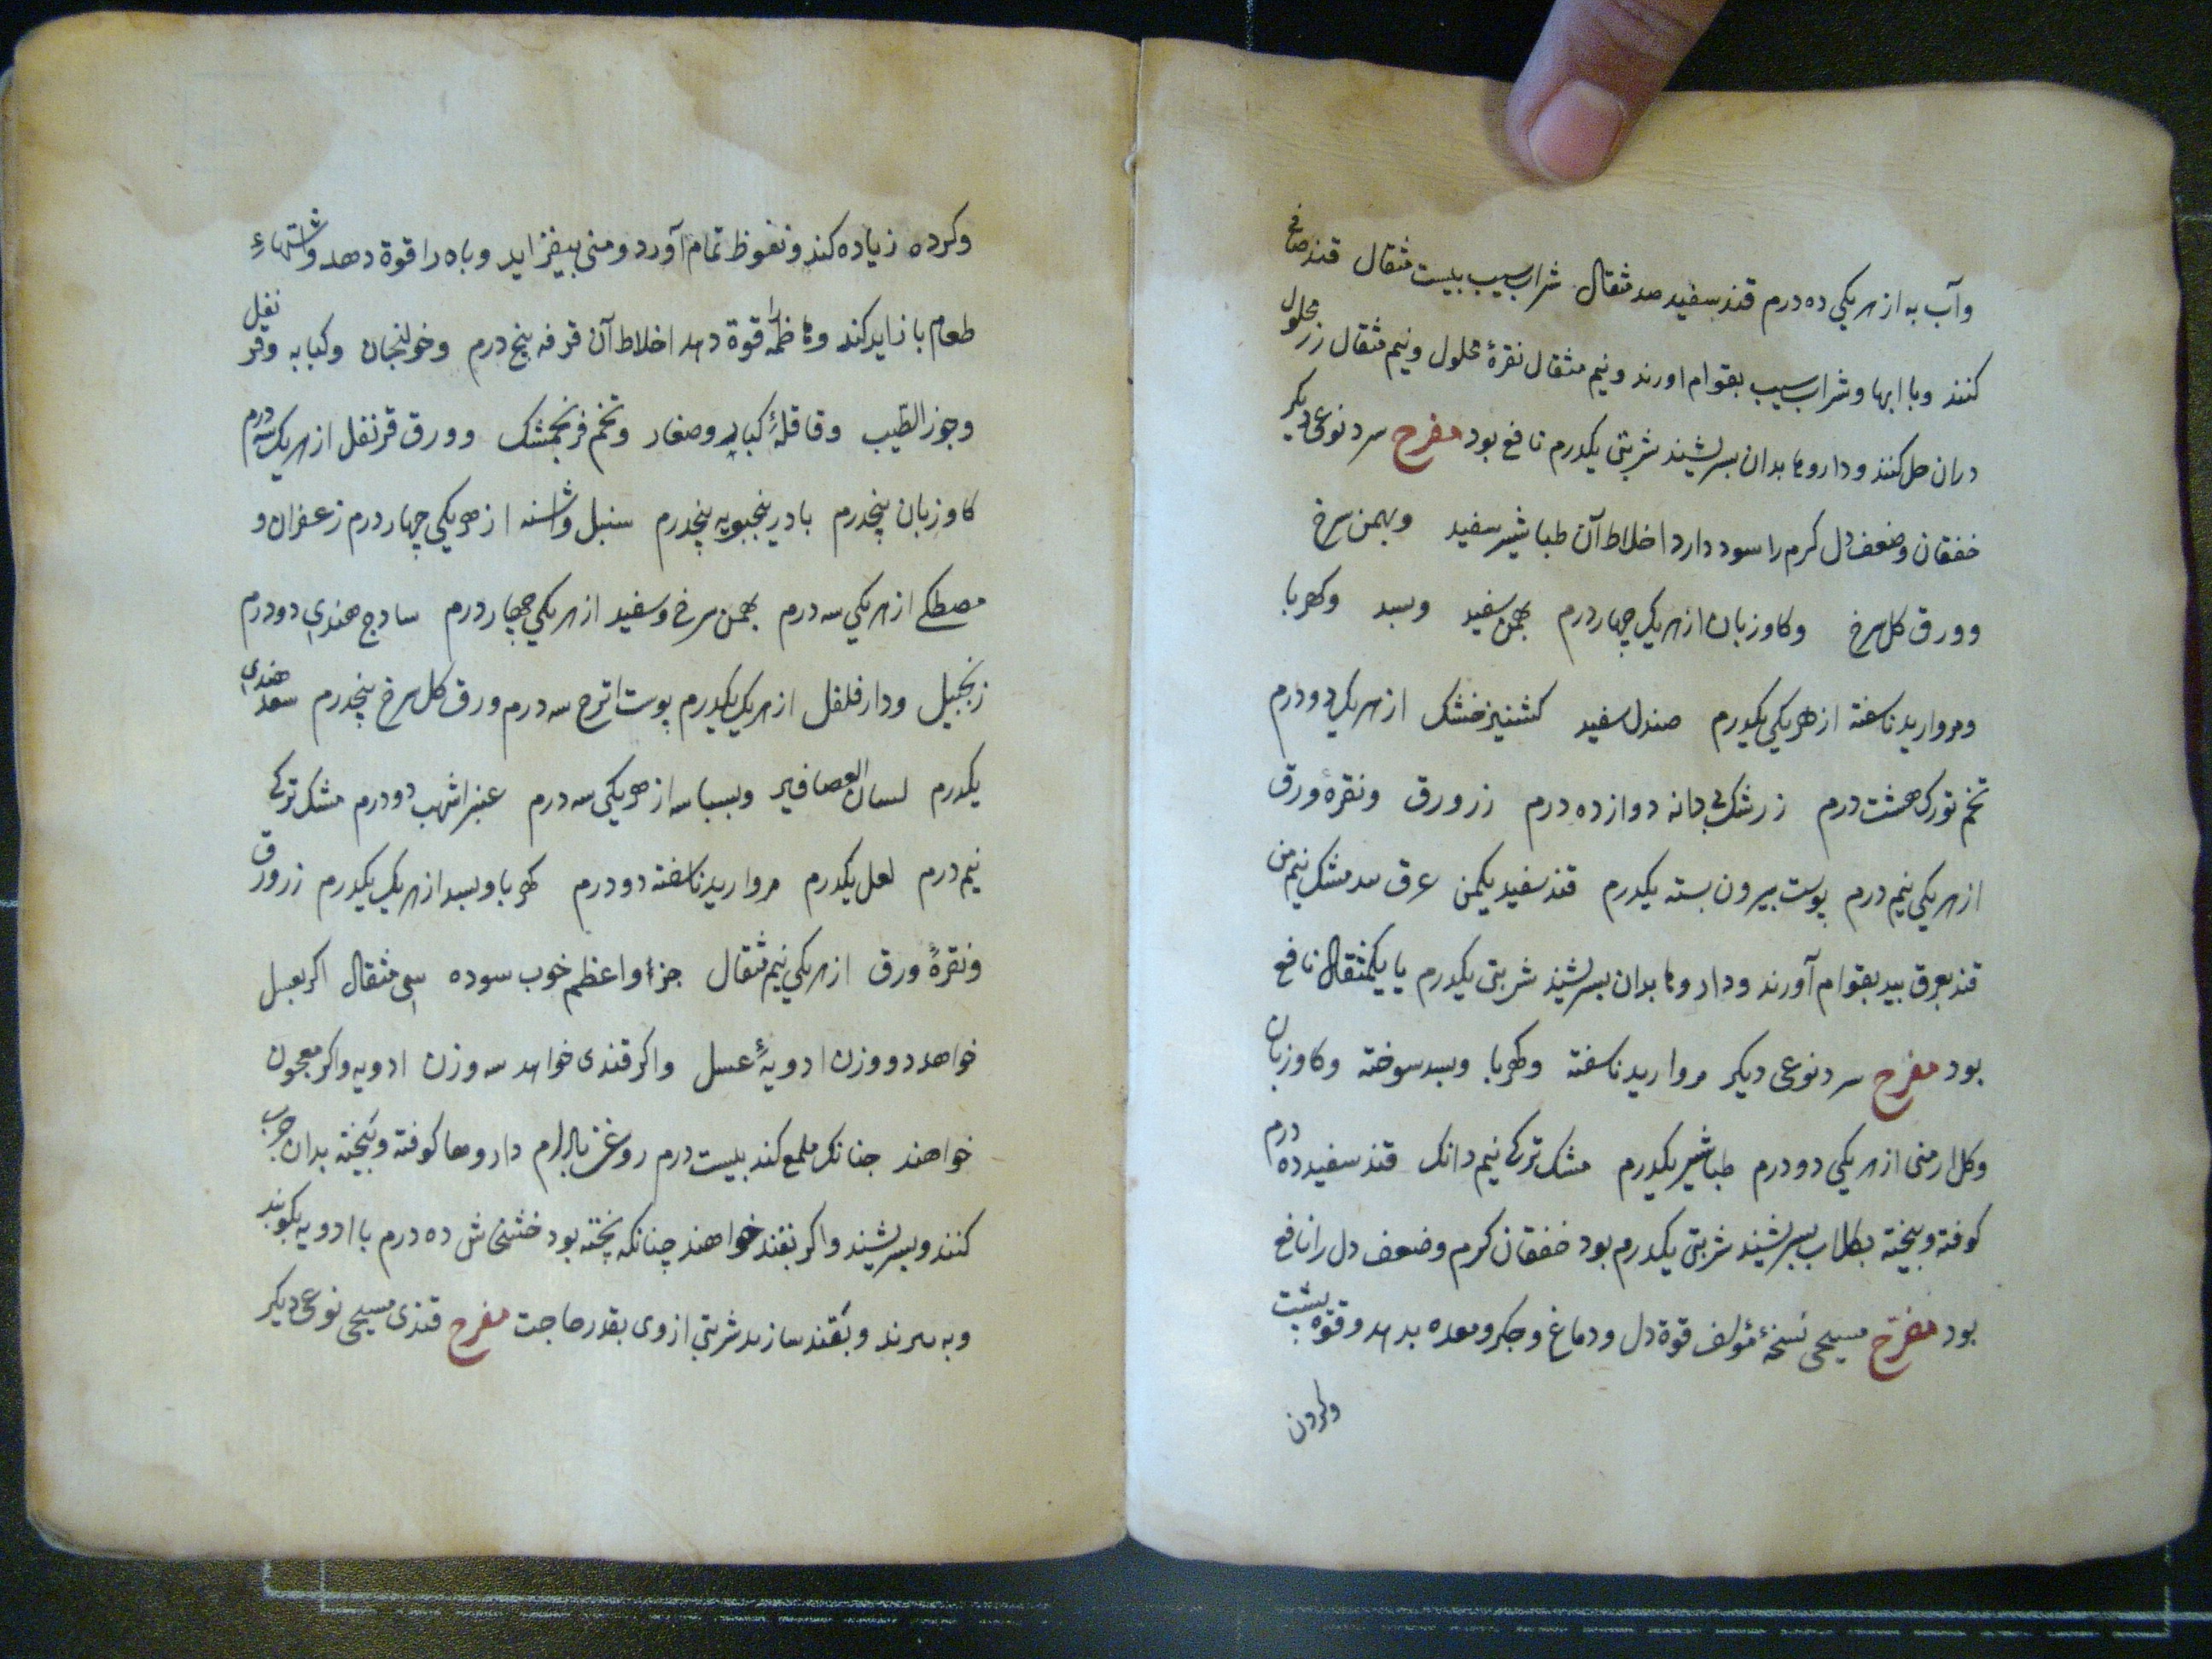 وآب به از هر یکی ده درم قند سفید صد مثقال شراب سیب بیست مثقال قند صافی
کنند وبا ابها وشراب سیب بقوام اورند ونیم مثقال نقرهٔ محلول ونیم مثقال زر محلول
دران حل کنند وداروها بدان بسرشیند شربتی یکدرم نافع بود مفرح سرد نوعی دیکر
خفقان وضعف دل کرم را سود دارد اخلاط آن طباشیر سفید وبهمن سرخ
وورق کل سرخ وکاوزبان از هریک چهار درم بهمن سفید وبسد وکهربا
ومروارید ناسفته از هریکی یکدرم صندل سفید کشنیز خشک از هریک دودرم
تخم تورک هشت درم زرشک بی دانه دوازده درم زر ورق ونقرهٔ ورق
از هریکی نیم درم پوست بیرون بسته یکدرم قند سفید یکمن عرق بیدمشک نیم من
قند بعرق بید بقوام آورند وداروها بدان بسرشیند شربتی یکدرم یا یکمثقال نافع
بود مفرح سرد نوعی دیکر مروارید ناسفته وکهربا وبسد سوخته وکاوزبان
وکل ارمنی از هریکی دودرم طباشیر یکدرم مشک ترکی نیم دانک قند سفید ده درم
کوفته وبیخته بکلاب بسرشیند شربتی یکدرم بود خفقان کرم وضعف دل را نافع
بود مفرح مسیحی نسخهٔ مؤلف قوة دل ودماغ وجکر ومعده بدهد وقوة پشت
وکردن
وکرده زیاده کند ونغوظ تمام آورد ومنی بیفزاید وباه را قوة دهد واشتهاء
طعام بازاید کند وهاظمه را قوة دهد اخلاط آن قرفه پنج درم وخولنجان وکبابه وقرنفل
وجوز الطیب وقاقلهٔ کبار وصغار وتخم فرنجمشک وورق قرنفل از هریک سه درم
کاوزبان پنجدرم بادرینجبویه پنجدرم سنبل واشنه از هریکی چهار درم زعفران و
مصطکی از هریکی سه درم بهمن سرخ وسفید از هریکی چهار درم سادج هندی دودرم
زنجبیل ودارفلفل از هریک یکدرم پوست اترج سه درم ورق کل سرخ پنجدرم سعد هندی
یکدرم لسان العصافیر وبسباسه از هریکی سه درم عنبر اشهب دودرم مشک ترکی
نیم درم لعل یکدرم مروارید ناسفته دودرم کهربا وبسد از هریک یکدرم زر ورق
ونقرهٔ ورق از هریکی نیم مثقال جزء واعظم خوب سوده سی مثقال اکر بعسل
خواهد دو وزن ادویهٔ عسل واکر قندی خواهد سه وزن ادویه واکر معجون
خواهند جنانک ملمع کند بیست درم روغن بادام داروها کوفته وبیخته بدان جرب
کنند وبسرشیند واکر بقند خواهند چنانکه پخته بود خشخاش ده درم با ادویه بکوبند
وبه برند وبقند سازند شربتی ازوی بقدر حاجت مفرح قندی مسیحی نوعی دیکر